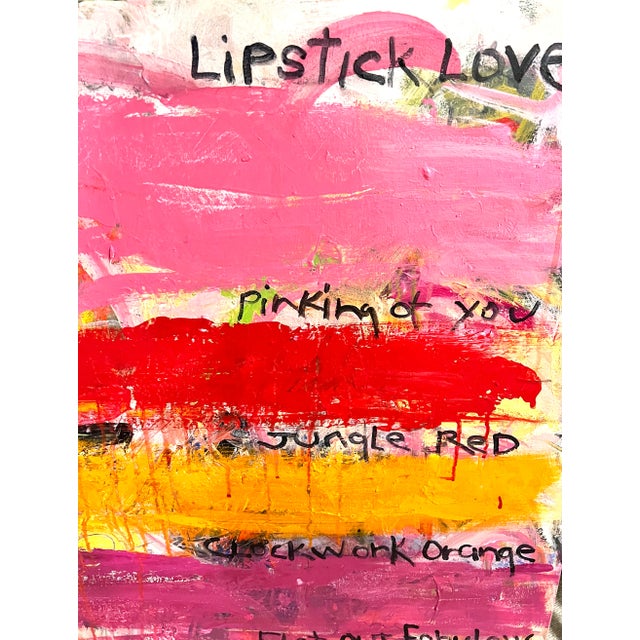 Lipstick Love
Pinking of you
Jungle Red
Clockwork Orange
Flat out Fabulous